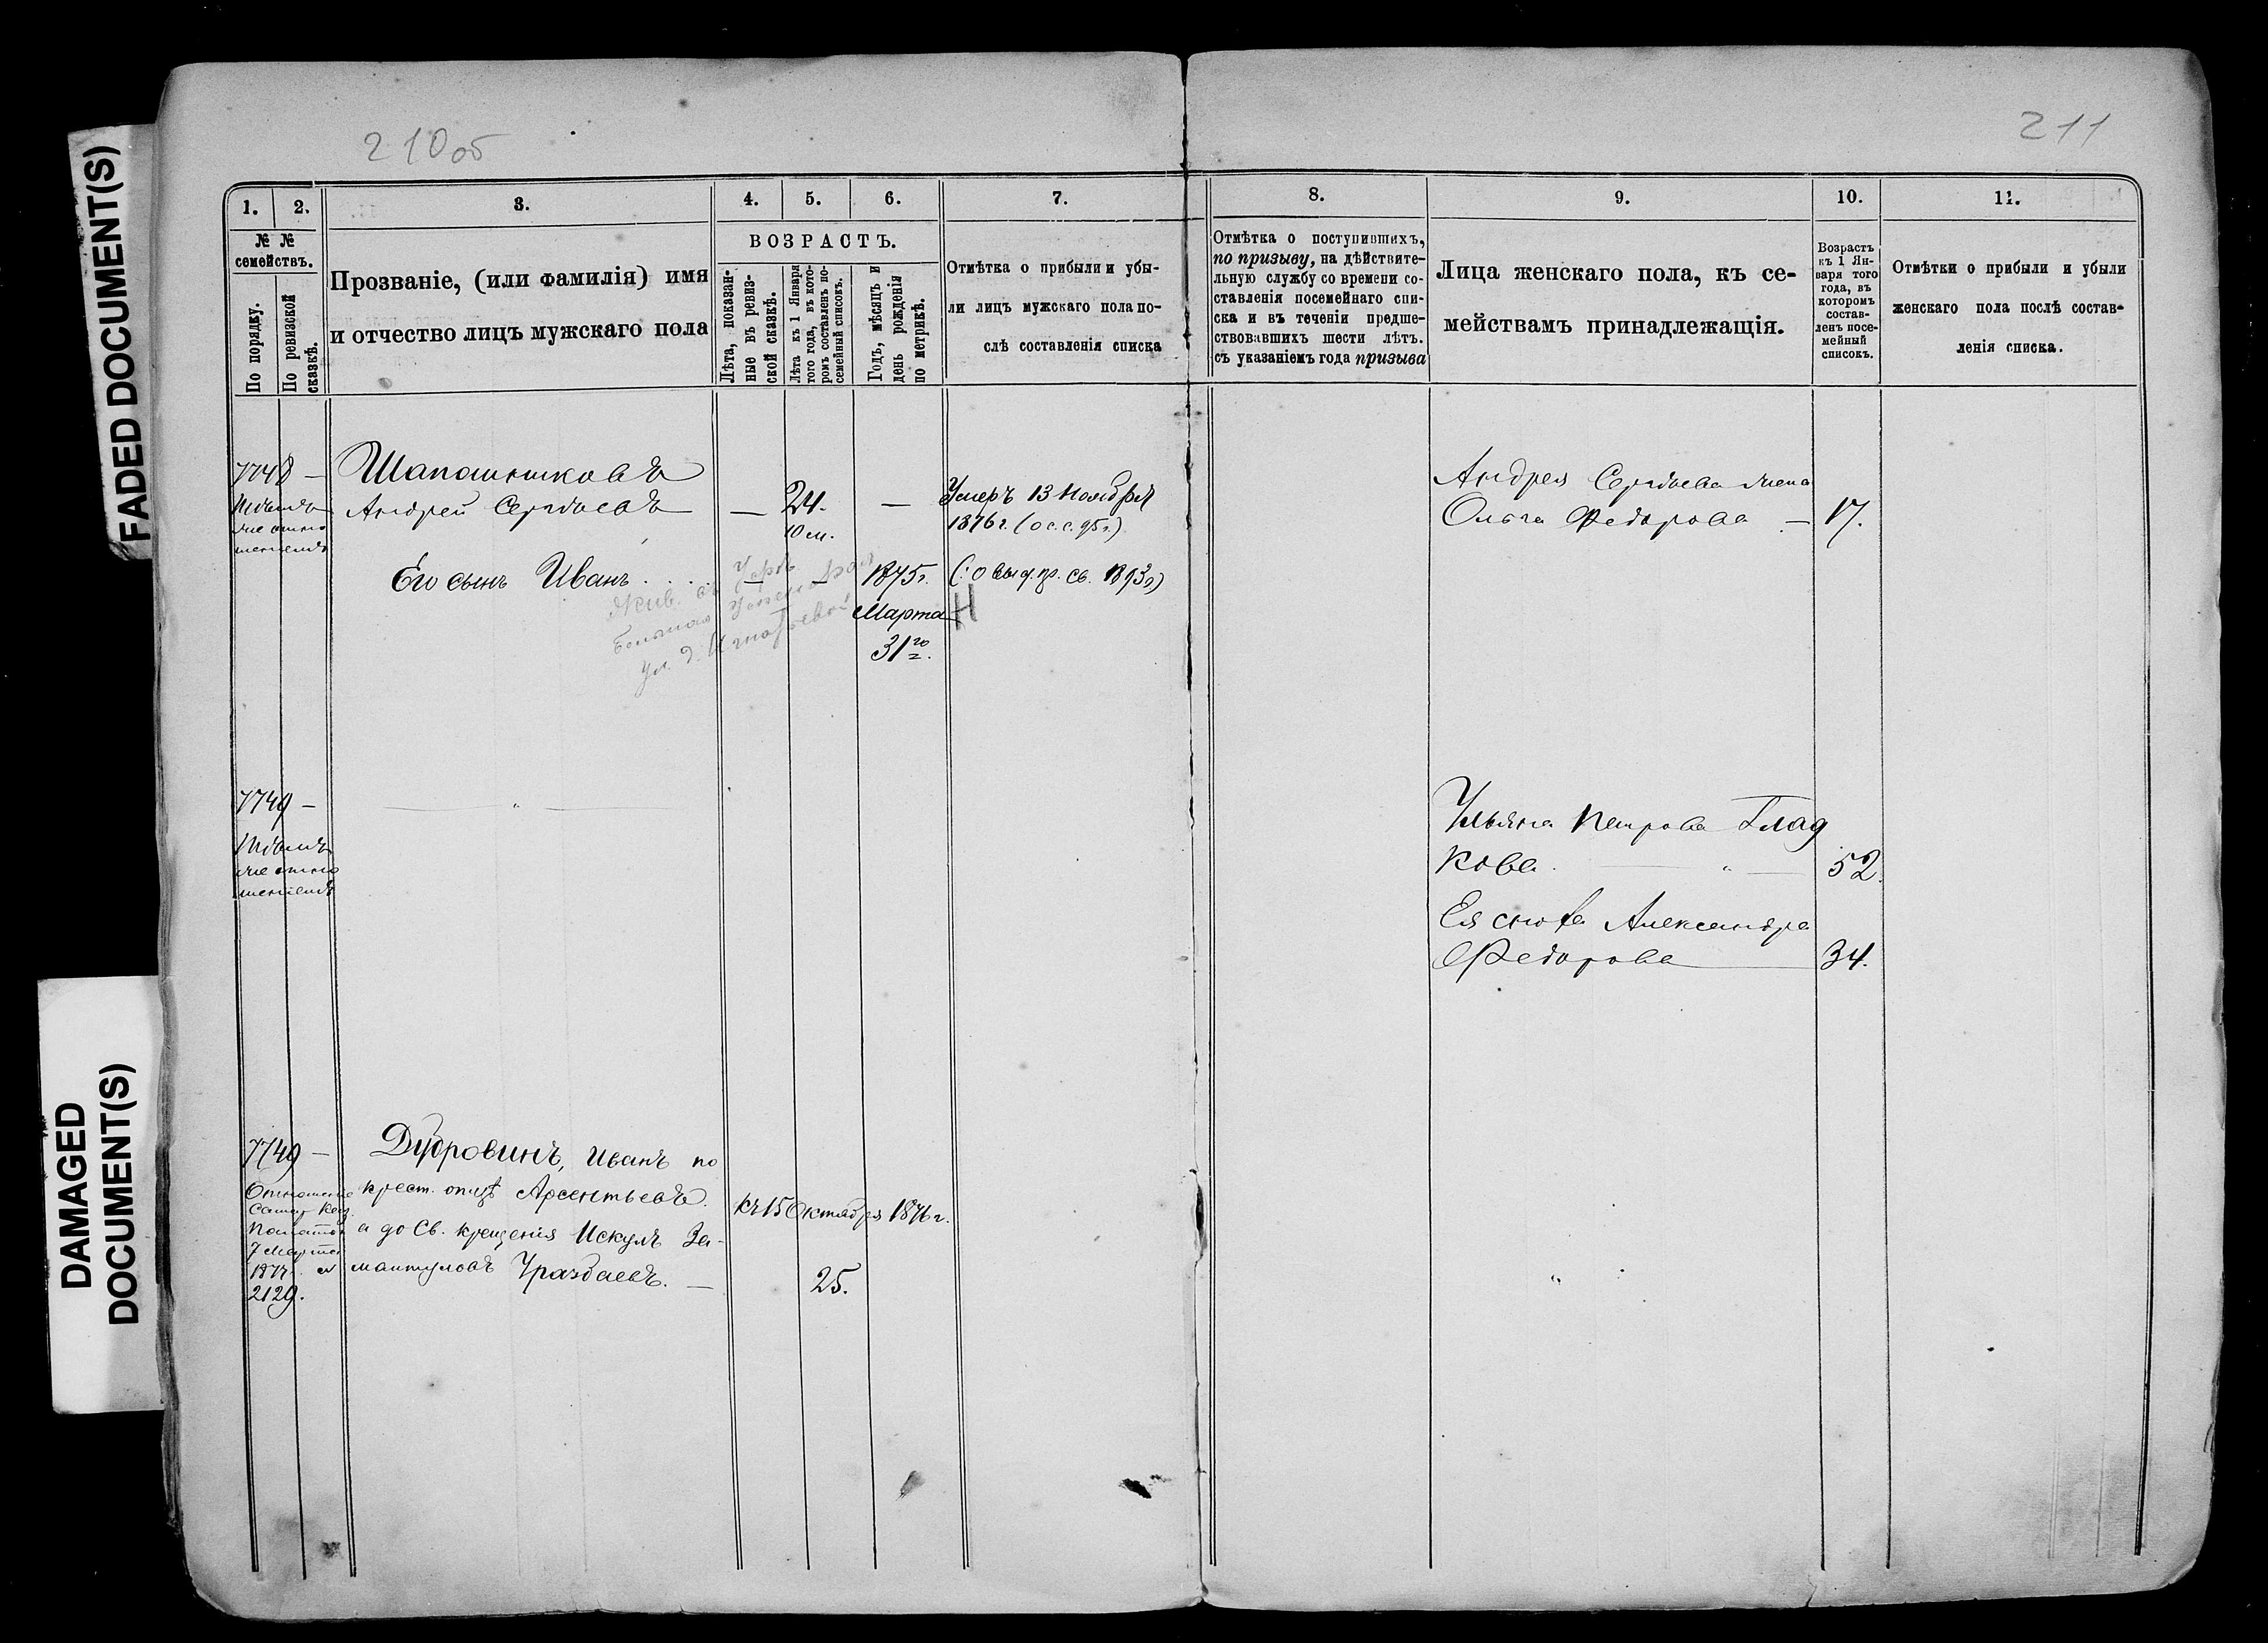 FADED DOCUMENT(S)
DAMAGED
DOCUMENT(S)
210об
211
1.
2.
3.
4.
5.
6.
7.
8.
9.
10.
11.
№ №
семействъ.
По порядку.
По ревизской
сказкѣ.
Прозваніе, (или фамилія) имя
и отчество лицъ мужскаго пола
ВОЗРАСТЪ.
Лѣта, показан-
ные въ ревиз-
ской сказкѣ.
Лѣта къ 1 Января
того года, въ кото-
ромъ составленъ по-
семейный списокъ.
Годъ, мѣсяцъ и
день рожденія
по метрикѣ.
Отмѣтка о прибыли и убы-
ли лицъ мужскаго пола по-
слѣ составленія списка
Отмѣтка о поступившихъ,
по призыву, на дѣйствите-
льную службу со времени со-
ставленія посемейнаго спи-
ска и въ теченіи предше-
ствовавшихъ шести лѣтъ.
съ указаніемъ года призыва
Лица женскаго пола, къ се-
мействамъ принадлежащія.
Возрастъ
къ 1 Ян-
варя того
года, въ
которомъ
состав-
ленъ посе-
мейный
списокъ.
Отмѣтки о прибыли и убыли
женскаго пола послѣ состав-
ленія списка.
7748 —
Шапошниковъ
Андрей Сергѣевъ — 24. —
10 м.
Умеръ 13 Ноября
1876 г. (о с. с. 95 г.)
Андрея Сергѣева жена
Ольга Федорова — 17.
Его сынъ Иванъ . . . — — 1875 г.
Марта
31го
Н
7749 —
Ульяна Петрова Глад
кова. — 52.
Ея сноха Александра
Федорова — 34.
7749 —
Дубровинъ, Иванъ по
крест. отцѣ Арсентьевъ.
а до Св. крещенія Искулъ За-
мантуловъ Уразбаевъ. —
къ 15 Октября 1876 г.
25.
7 Марта
2129.